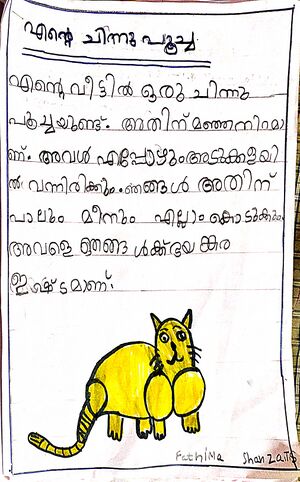 എന്റെ ചിന്നു പൂച്ച
എന്റെ വീട്ടിൽ ഒരു ചിന്നു
പൂച്ചയുണ്ട്. അതിന് മഞ്ഞനിറമാ
ണ്. അവൾ എപ്പോഴും അടുക്കളയി
ൽ വന്നിരിക്കും. ഞങ്ങൾ അതിന്
പാലും മീനും എല്ലാം കൊടുക്കും
അവളെ ഞങ്ങ ൾക്ക് ഭയ ങ്കര
ഇഷ്ടമാണ്.
Fathima Shanza